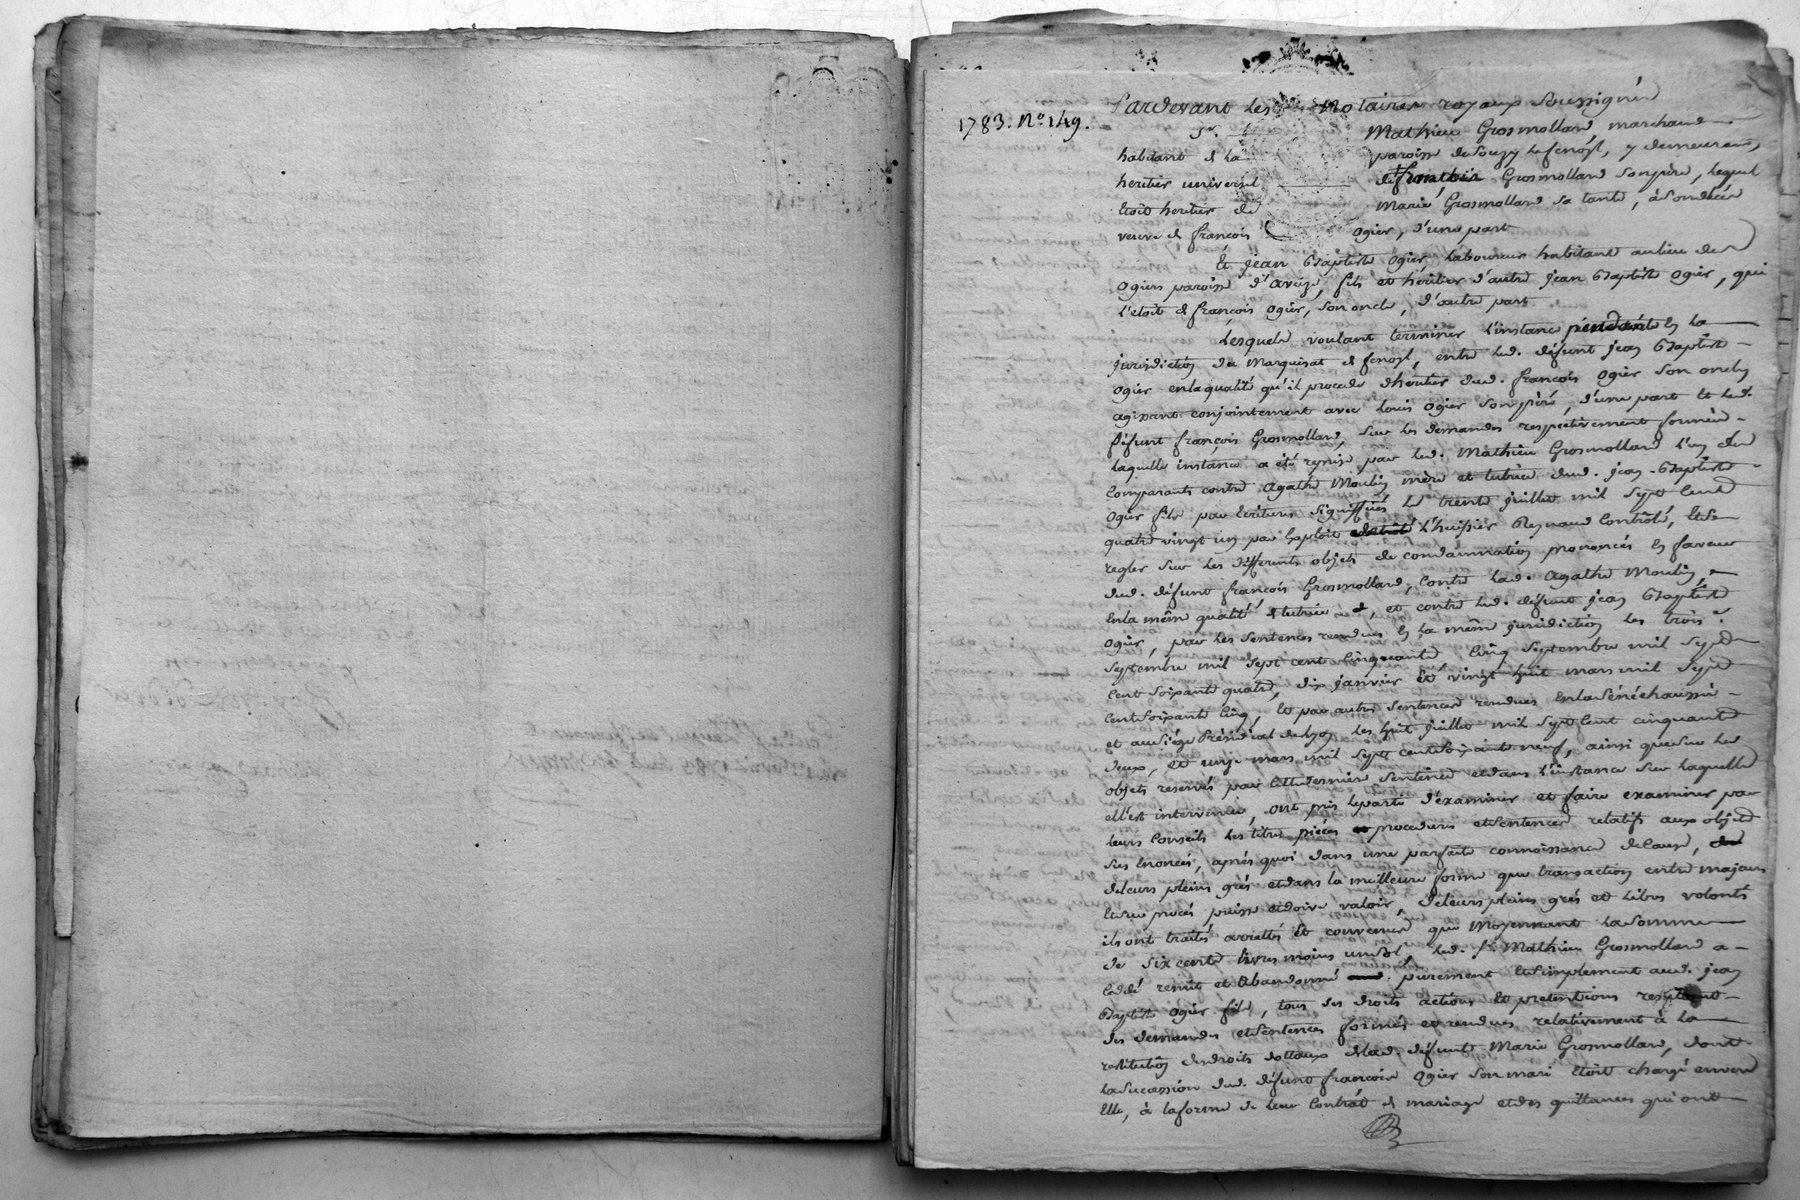 1783. N.° 149.
Pardevant Les Notaires royaux soussignés
S.r Mathieu Grosmollard, marchand
habitant de la paroisse de Souzy Lafenoyl, y demeurant,
heritier universel de françois Grosmollard son père, lequel
Etoit heritier de Marie Grosmollard sa tante, à son décès
veuve de françois Ogier, d'une part
Et jean Baptiste Ogier Laboureur habitant au lieu des
Ogiers paroisse d'aveize, fils et héritier d'autre jean Baptiste Ogier, qui
L'etoit de françois Ogier, son oncle, d'autre part
Lesquels voulant terminer L'instance pendante En La
jurisdiction du Marquisat de fenoyl, entre Led. défunt jean Baptiste
Ogier en la qualité qu'il procede d'heritier dud. françois Ogier son oncle
agissant conjointement avec Louis Ogier son père, d'une part Et Led.
Défunt françois Grosmollard, sur Les demandes respectivement formées
Laquelle instance a été reprise par Led. Mathieu Grosmollard L'un des
Comparants contre Agathe Moulin mère et tutrice dud. jean Baptiste
Ogier fils par Ecritures signiffiées Le trente juillet mil sept Cent
quatre vingt un par Exploit L'huissier Reynaud Contrôlé, Et se
regler sur Les differents objets de condamnation prononcés En faveur
dud. défunt françois Grosmollard, Contre Lad. Agathe Moulin,
En la même qualité de tutrice, et contre Led. défunt jean Baptiste
Ogier, par Les sentences rendues En La même juridiction Les trois
septembre mil sept cent Cinquante Cinq septembre mil sept
Cent soixante quatre, dix janvier Et vingt huit mars mil sept
Cent soixante Cinq, Et par autres sentences rendues En la Sénéchaussée
et au Siége Présidial de Lyon Les huit juillet mil sept Cent cinquante
deux, et onze mars mil sept cent soixante neuf, ainsi que sur Les
objets reservés par Cette derniere sentence et dans L'instance sur Laquelle
elle est intervenue, ont pris Le parti d'examiner et faire examiner par
Leurs Conseils Les titres pièces procedures et sentences relatifs aux objets
sus Enoncés, après quoi dans une parfaite connoissance de Cause,
de Leurs pleins grés et dans la meilleure forme que transaction entre majeurs
Et sur procés puisse et doive valoir, de Leurs pleins grés et Libres volontés
ils ont traités arrettés Et convenus que Moyennant La somme
de six cents Livres moins un sol, Led. S.r Mathieu Grosmollard a
Cedé remit et Abandonné purement Et simplement aud. jean
Baptiste Ogier fils, tous ses droits actions Et pretentions resultant
des demandes et Sentences formées et rendues relativement à La
restitution des droits dottaux de Lad. défunte Marie Grosmollard, dont
La succession dud. défunt françois Ogier son mari Etoit chargé envers
Elle, à la forme de Leur Contrat de mariage et des quittances qui ont